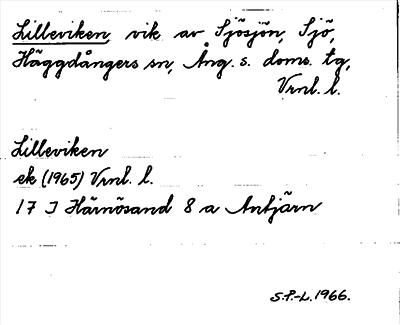 Lilleviken, vik av Sjösjön, Sjö,
Häggdångers sn, Ång. s. doms. tg,
Vrnl. l.
Lilleviken
ek (1965) Vrnl. l.
17 J Härnösand 8 a Antjärn
S.P.-L. 1966.